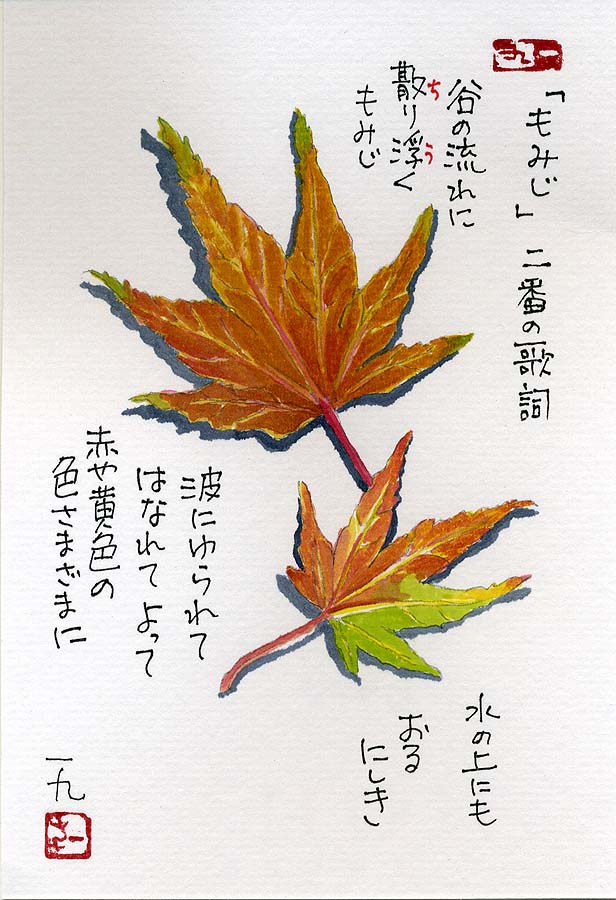 「もみじ」二番の歌詞
谷の流れに
散り浮く
ち う
もみじ
波にゆられて
はなれてよって
赤や黄色の
色さまざまに
水の上にも
おる
にしき
一九